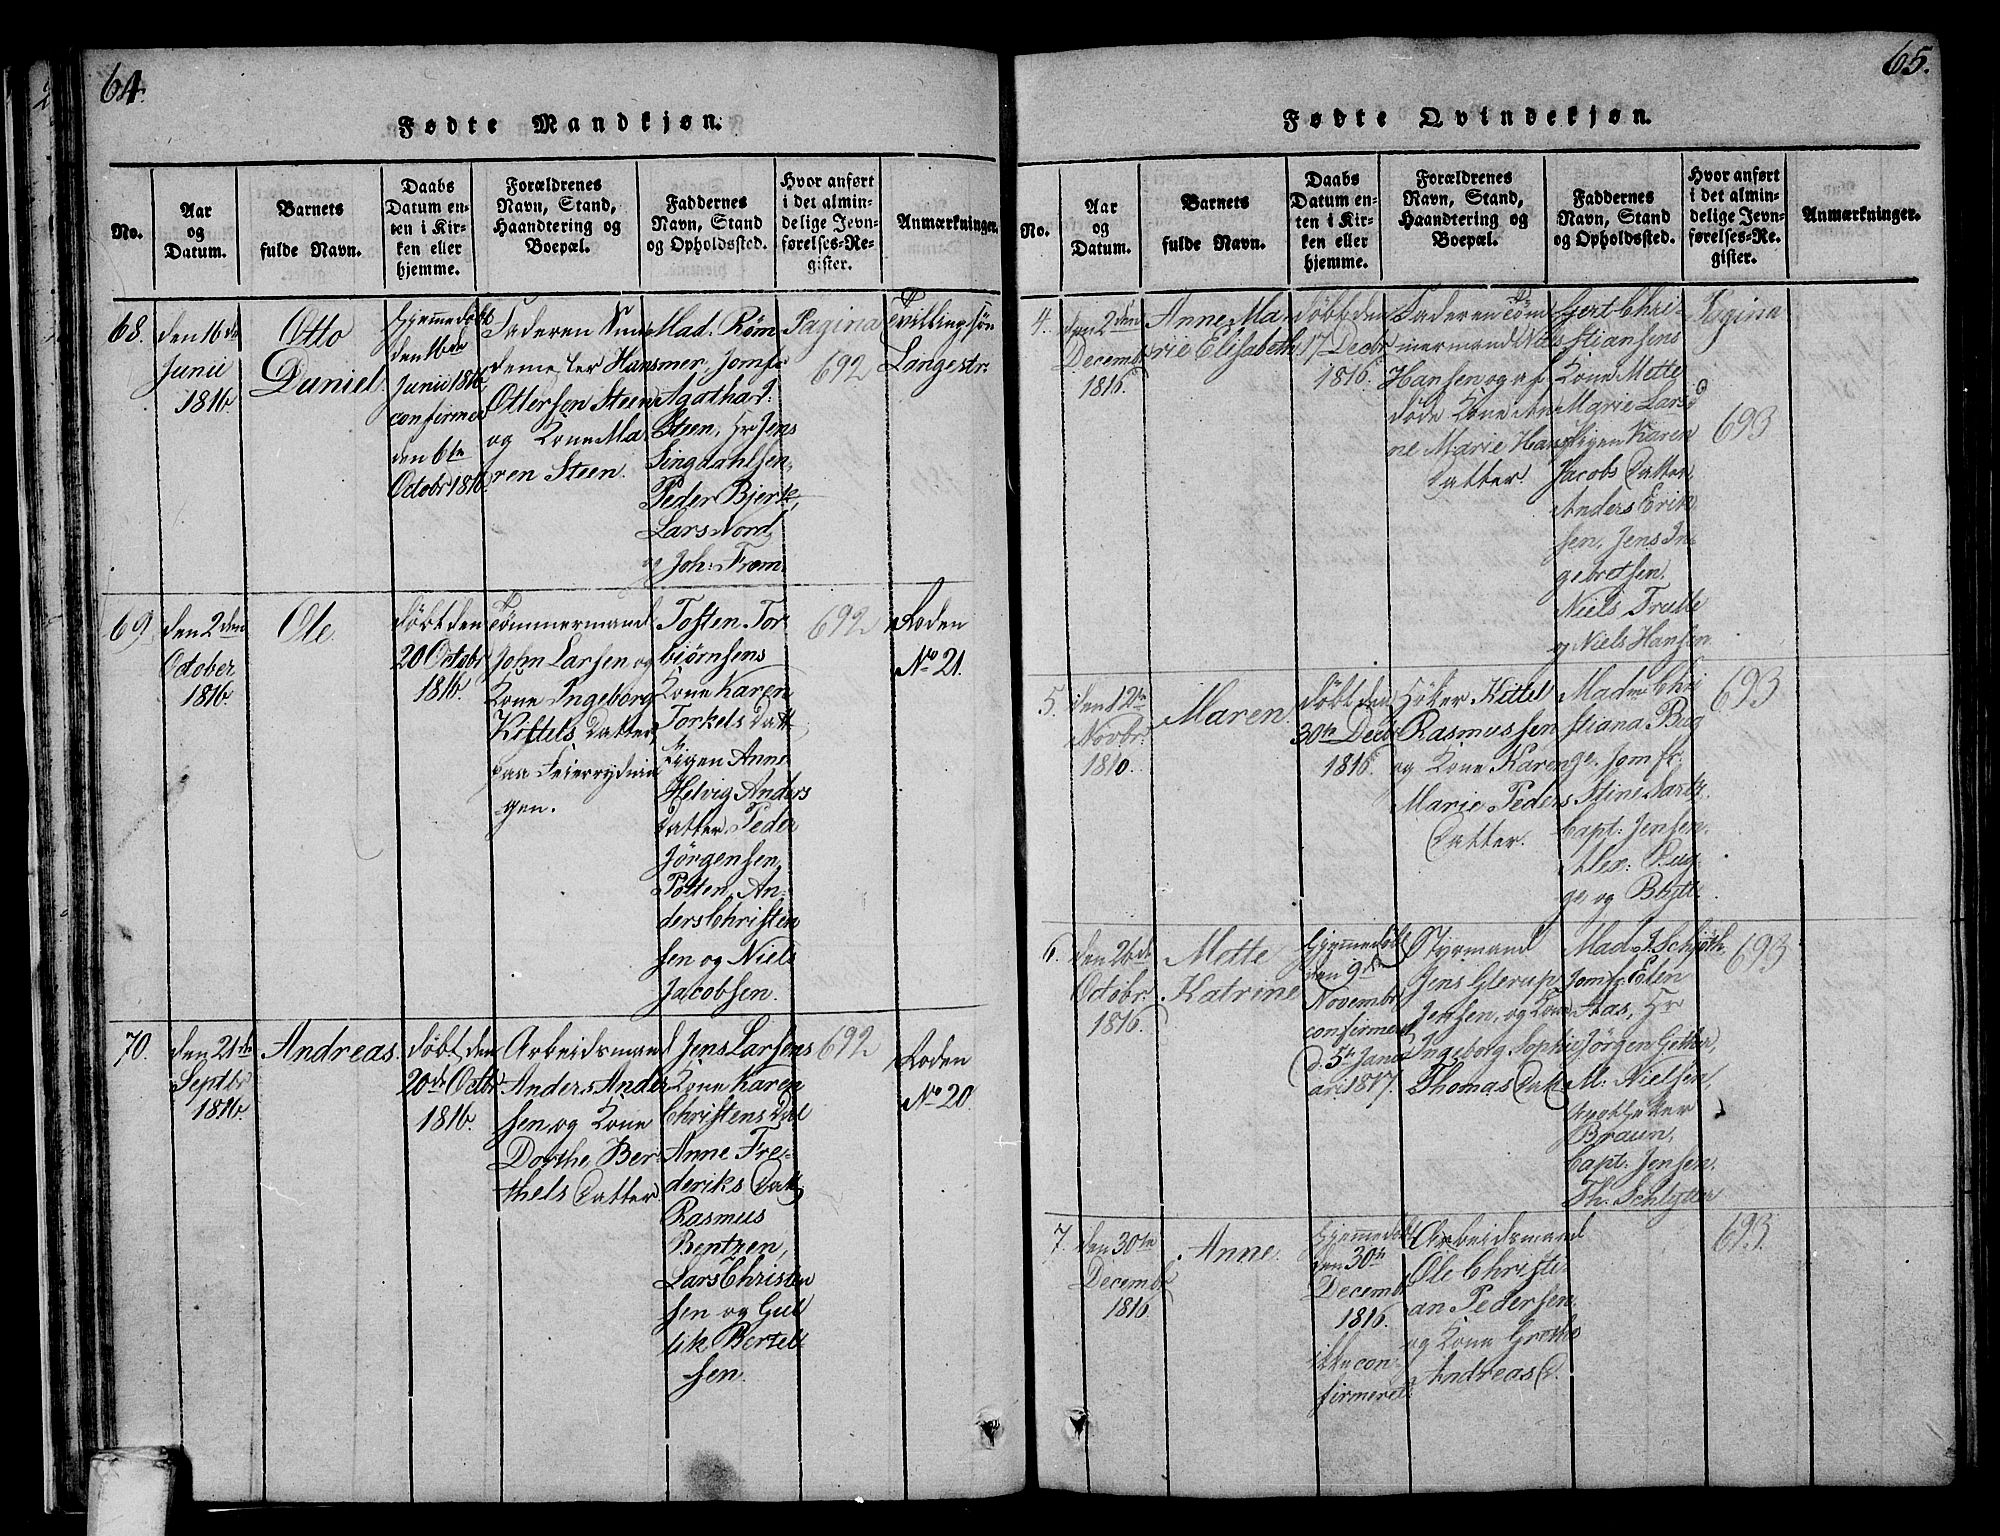 64.
Fødte Mandkjøn.
No.
Aar
og
Datum.
Barnets
fulde Navn.
Daabs
Datum en-
ten i Kir-
ken eller
hjemme.
Forældrenes
Navn, Stand,
Haandtering og
Boepæl.
Faddernes
Navn, Stand
og Opholdssted.
Hvor anført
i det almin-
delige Jevn-
førelses-Re-
gister.
Anmærkninger.
68.
den 16de
Junii
1816.
Otto
Daniel
Hjemmedøbt
den 16den
Junii 1816
confirmer
den 6te
Octobr 1816.
Faderen
Hans
Ottersen Steen
og Kone Ma
ren Steen.
Mad. Røm
mer, Jomfr
Agatha J.
Steen, Hr Jens
Singdahlsen,
Peder Bjerk,
Lars Nord
og Joh: From.
Pagina
692
Tvillingsøn
Langestr.
69
den 2den
October
1816.
Ole.
døbt den
20 Octobr
1816.
Tømmermand
John Larsen og
Kone Ingeborg
Kittels Datter,
paa
gen.
Tosten Tor
biørnsens
Kone Karen
Torkels Datt
Pigen Anne
Helvig Anders
Datter, Peder
Jørgensen,
Potten, An-
ders Christen
sen og Niels
Jacobsen.
692
Roden
No 21.
70.
den 21de
Septbr
1816.
Andreas.
døbt den
20de Octbr
1816.
Arbeidsmand
Anders Ander
sen og Kone
Dorthe Ber
thels Datter
Jens Larsens
Kone Karen
Christens Dat
Anne Fre-
deriks Datt
Rasmus
Bentzen,
Lars Christen
sen og Gul
lik Bertel
sen.
692
Roden
No 20.
65.
Fødte Qvindekjøn.
No.
Aar
og
Datum.
Barnets
fulde Navn.
Daabs
Datum en-
ten i Kir-
ken eller
hjemme.
Forældrenes
Navn, Stand,
Haandtering og
Boepæl.
Faddernes
Navn, Stand
og Opholdssted.
Hvor anført
i det almin-
delige Jevn-
førelses-Re-
gister.
Anmærkninger.
4.
den 2den
Decembr
1816.
Anne Ma
rie Elisabeth
døbt den
17 Decbr
1816.
Faderen Tøm
mermand Niels
Hansen og af
døde Kone An
ne Marie Hans
Datter.
Gert Chri-
stiansens
Kone Mette
Marie Lars D
Pigen Karen
Jacobs Datter,
Anders Erik
sen, Jens In
gebretsen,
Niels Trulle
og Niels Hansen.
Pagina
693
5.
den 12te
Novbr.
1816.
Maren.
døbt den
30te Decbr
1816.
Høker Kittel
Rasmussen
og Kone Karen
Marie Peders
Datter.
Madm Chri
stiana Bug
ge, Jomfr.
Stine
Capt: Jensen,
Alex: Bug
ge, og Blytt.
693
6.
den 26de
Octobr.
1816.
Mette
Katrine
Hjemmedøbt
den 9de
Novembr
confirmeret
d. 5te Janu
ari 1817.
Styrmand
Jens Glerup
Jensen, og Kone
Ingeborg Sophie
Thomas Datt.
Mad J. Schjøth
Jomfr: Elen
Aas, Hr
Jørgen
M: Nielsen,
Apotheker
Braun,
Capt: Jensen,
Th: Schlytter
693
7.
den 30te
Decembr
1816.
Anne.
Hjemmedøbt
den 30te
Decembr
1816.
ikke con-
firmeret.
Arbeidsmand
Ole Christi-
an Pedersen
og Kone Grethe
Andreas D.
693.